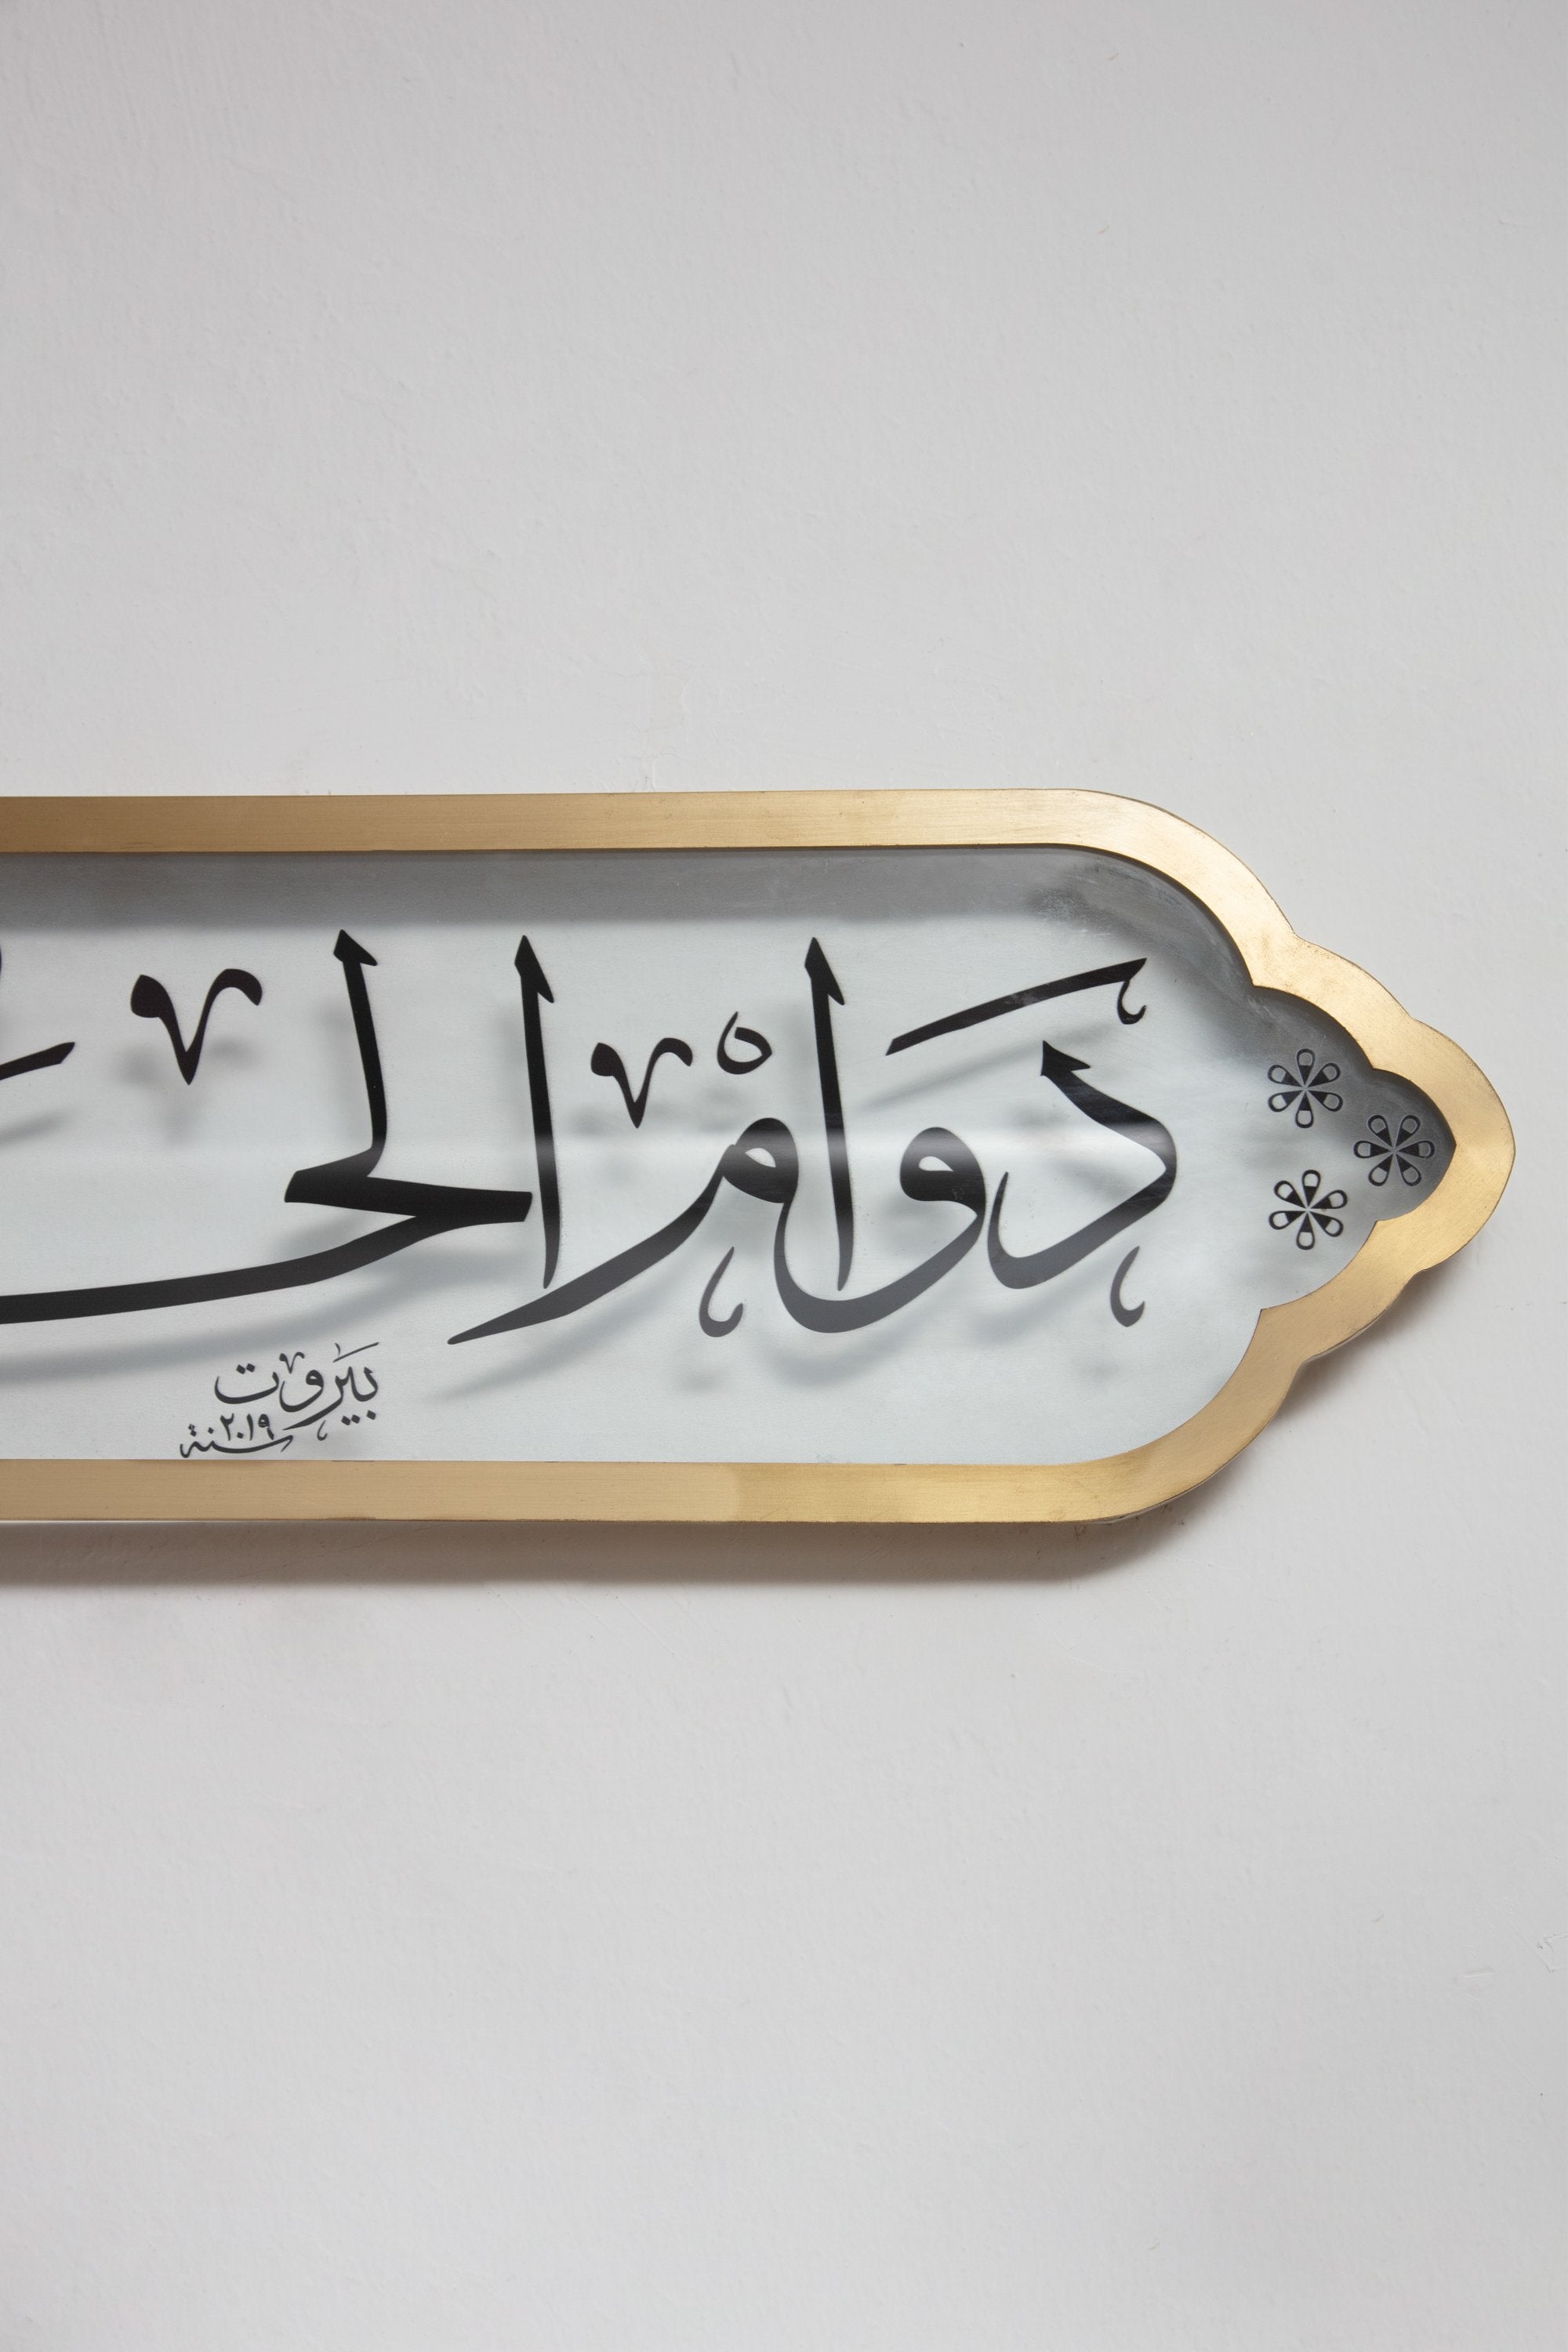 دَوامْ الحـ
بَيروت
سنة ٢٠١٩